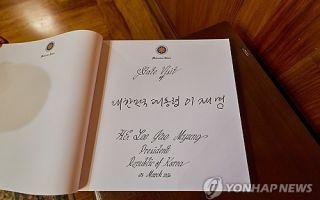 State Visit
of
대한민국 대통령 이재명
H.E. Lee Jae Myung
President
Republic of Korea
YONHAP NEWS